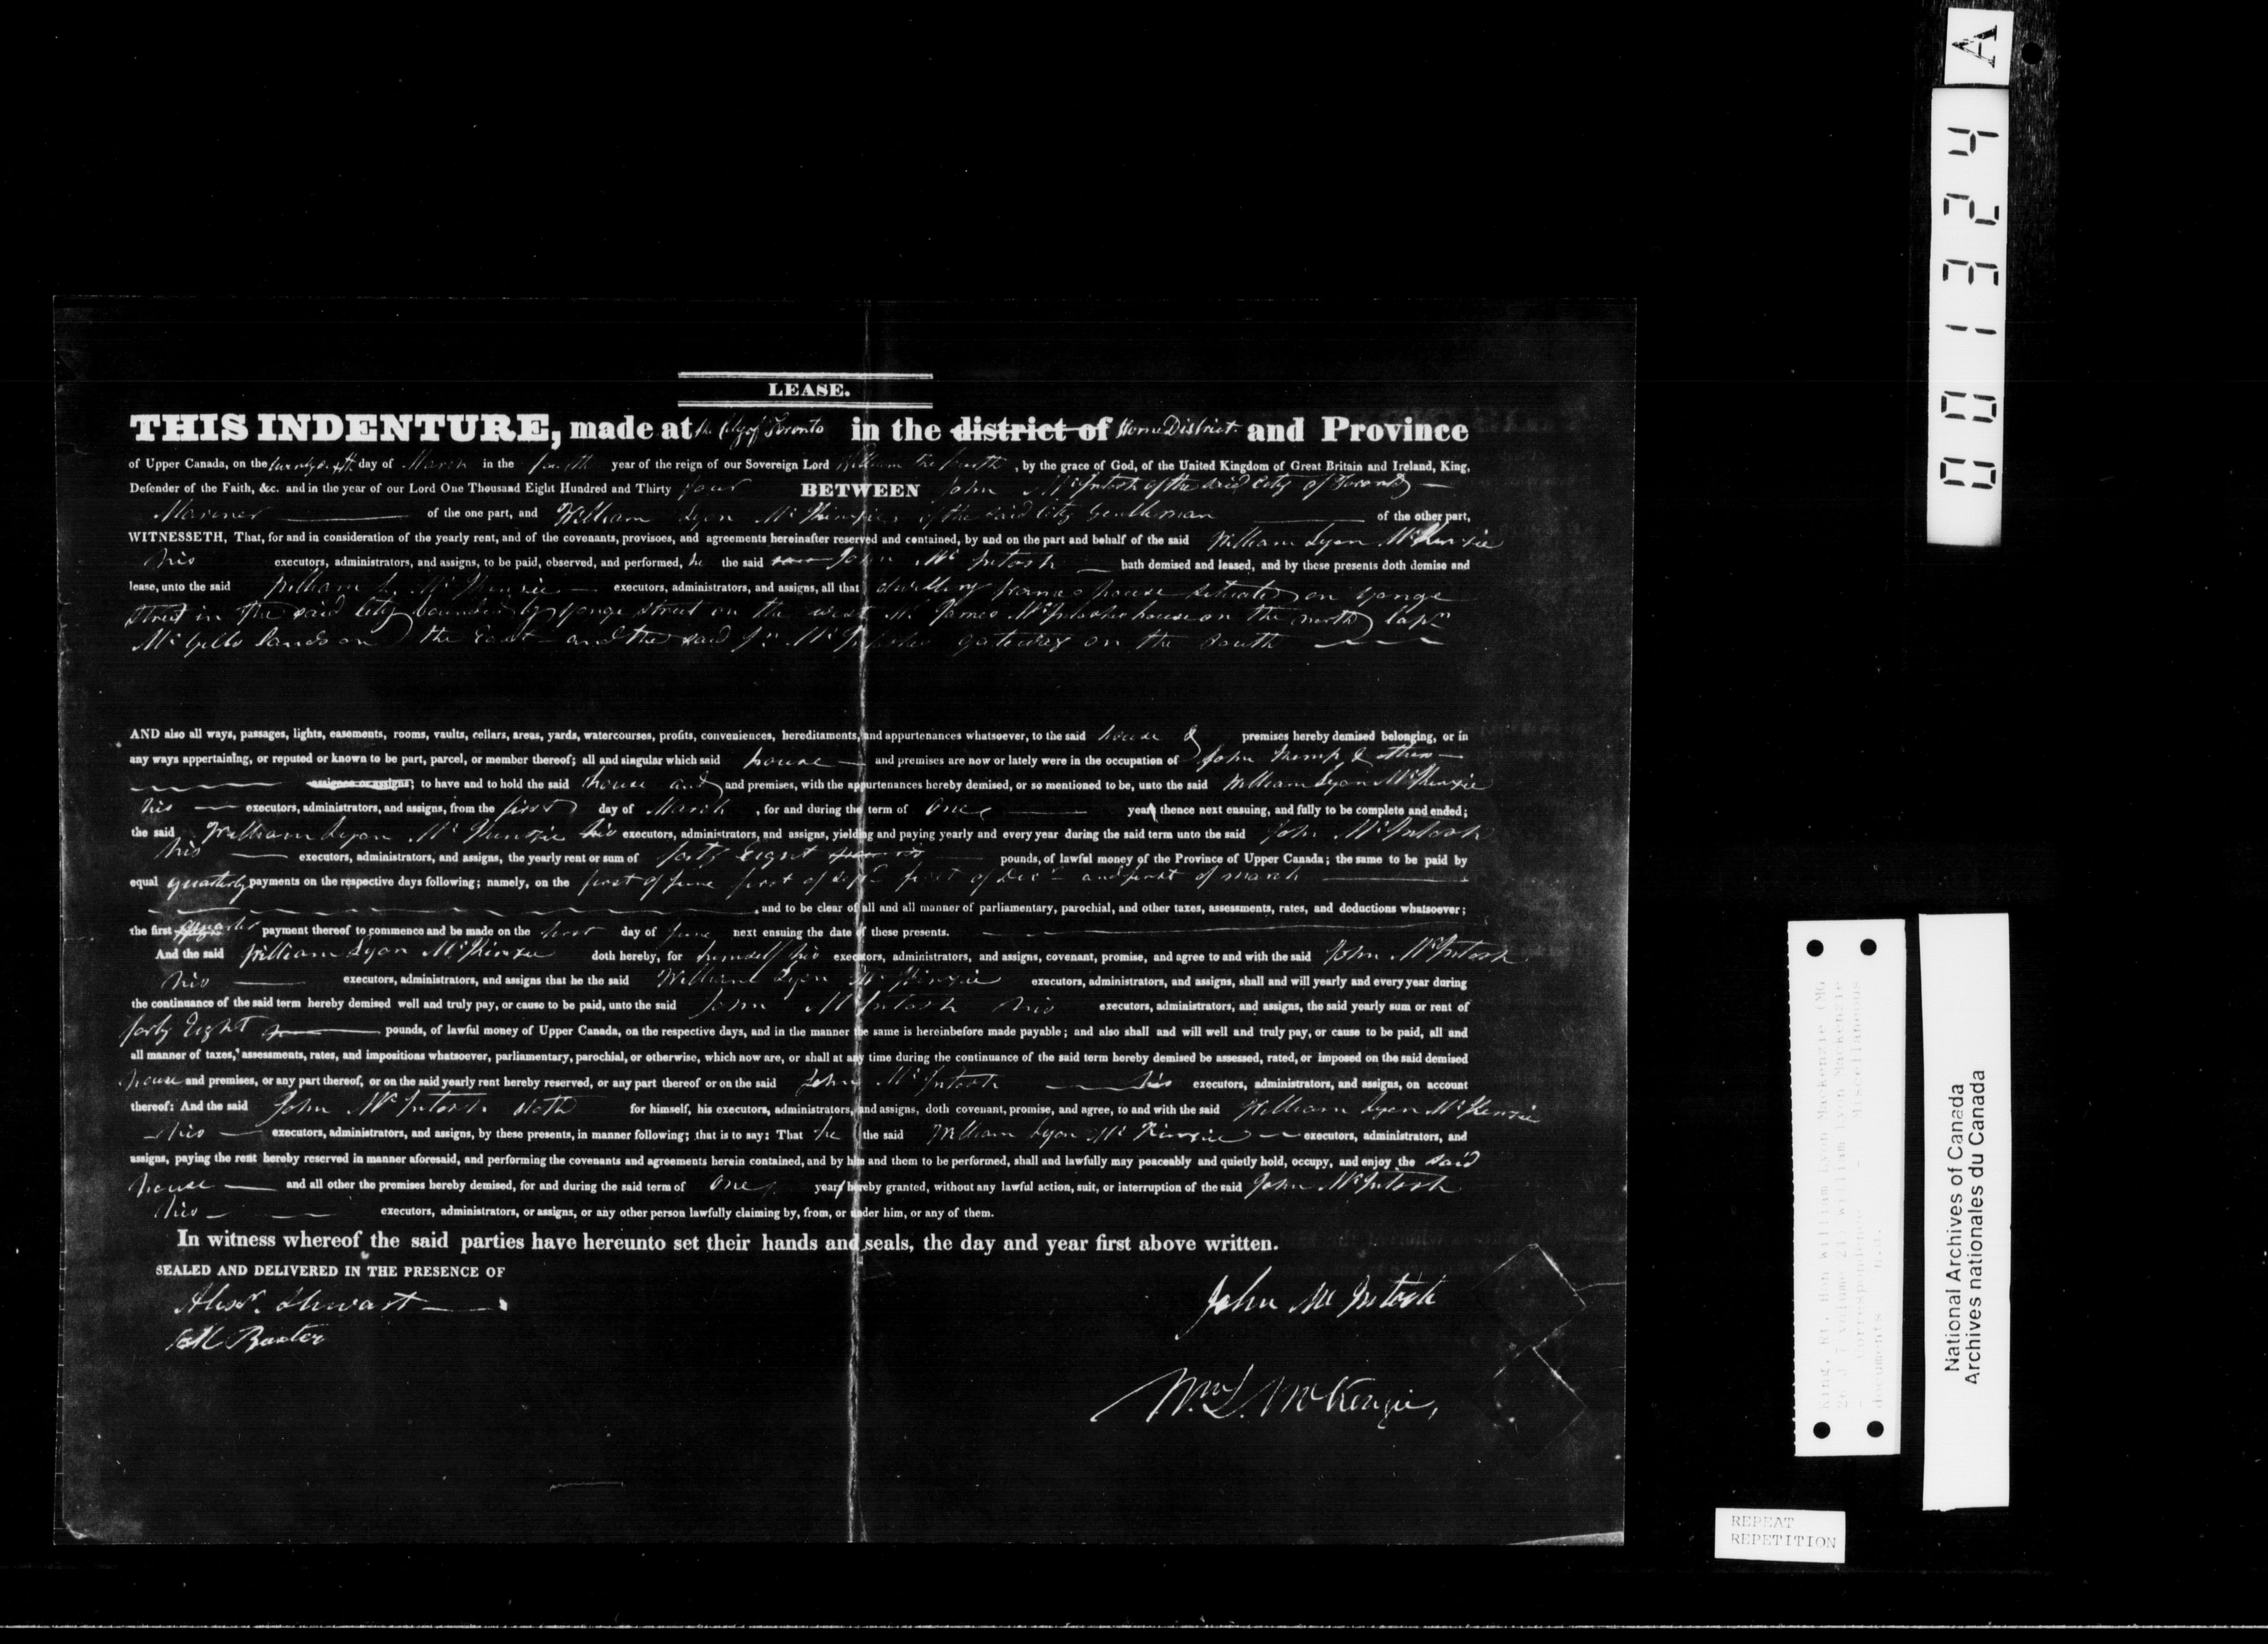 LEASE.
THIS INDENTURE, made at the City of Toronto in the district of Home District and Province
of Upper Canada, on the twenty sixth day of March in the fourth year of the reign of our Sovereign Lord William the fourth, by the grace of God, of the United Kingdom of Great Britain and Ireland, King,
Defender of the Faith, &c. and in the year of our Lord One Thousand Eight Hundred and Thirty four BETWEEN John McIntosh of the said City of Toronto
Mariner of the one part, and William Lyon McKenzie of the said City Gentleman of the other part,
WITNESSETH, That, for and in consideration of the yearly rent, and of the covenants, provisoes, and agreements hereinafter reserved and contained, by and on the part and behalf of the said William Lyon McKenzie
his executors, administrators, and assigns, to be paid, observed, and performed, he the said John McIntosh hath demised and leased, and by these presents doth demise and
lease, unto the said William L. McKenzie executors, administrators, and assigns, all that dwelling frame house situate on Yonge
street in the said City bounded by Yonge street on the west Mr. James McIntoshes house on the north Capn
McGills lands on the East and the said Jn. McIntoshes gateway on the south
AND also all ways, passages, lights, easements, rooms, vaults, cellars, areas, yards, watercourses, profits, conveniences, hereditaments, and appurtenances whatsoever, to the said house & premises hereby demised belonging, or in
any ways appertaining, or reputed or known to be part, parcel, or member thereof; all and singular which said house and premises are now or lately were in the occupation of John Kemp & others
assignee or assigns; to have and to hold the said house and and premises, with the appurtenances hereby demised, or so mentioned to be, unto the said William Lyon McKenzie
his executors, administrators, and assigns, from the first day of March, for and during the term of One year thence next ensuing, and fully to be complete and ended;
the said William Lyon McKenzie his executors, administrators, and assigns, yielding and paying yearly and every year during the said term unto the said John McIntosh
his executors, administrators, and assigns, the yearly rent or sum of forty Eight pounds, of lawful money of the Province of Upper Canada; the same to be paid by
equal quarterly payments on the respective days following; namely, on the first of June first of Septr first of Decr and first of March
, and to be clear of all and all manner of parliamentary, parochial, and other taxes, assessments, rates, and deductions whatsoever;
the first quarter payment thereof to commence and be made on the first day of June next ensuing the date of these presents.
And the said William Lyon McKenzie doth hereby, for himself his executors, administrators, and assigns, covenant, promise, and agree to and with the said John McIntosh
his executors, administrators, and assigns that he the said William Lyon McKenzie executors, administrators, and assigns, shall and will yearly and every year during
the continuance of the said term hereby demised well and truly pay, or cause to be paid, unto the said John McIntosh his executors, administrators, and assigns, the said yearly sum or rent of
forty Eight pounds, of lawful money of Upper Canada, on the respective days, and in the manner the same is hereinbefore made payable; and also shall and will well and truly pay, or cause to be paid, all and
all manner of taxes, assessments, rates, and impositions whatsoever, parliamentary, parochial, or otherwise, which now are, or shall at any time during the continuance of the said term hereby demised be assessed, rated, or imposed on the said demised
house and premises, or any part thereof, or on the said yearly rent hereby reserved, or any part thereof or on the said John McIntosh his executors, administrators, and assigns, on account
thereof: And the said John McIntosh doth for himself, his executors, administrators, and assigns, doth covenant, promise, and agree, to and with the said William Lyon McKenzie
his executors, administrators, and assigns, by these presents, in manner following; that is to say: That he the said William Lyon McKenzie executors, administrators, and
assigns, paying the rent hereby reserved in manner aforesaid, and performing the covenants and agreements herein contained, and by him and them to be performed, shall and lawfully may peaceably and quietly hold, occupy, and enjoy the said
house and all other the premises hereby demised, for and during the said term of One year hereby granted, without any lawful action, suit, or interruption of the said John McIntosh
his executors, administrators, or assigns, or any other person lawfully claiming by, from, or under him, or any of them.
In witness whereof the said parties have hereunto set their hands and seals, the day and year first above written.
SEALED AND DELIVERED IN THE PRESENCE OF
Alexr. Stewart
Baxter
John McIntosh
Wm L. McKenzie,
A
001324
King, Rt. Hon William Lyon Mackenzie (MG
26 J 7 volume 21) William Lyon Mackenzie
- Correspondence - Miscellaneous
documents n.d.
National Archives of Canada
Archives nationales du Canada
REPEAT
REPETITION